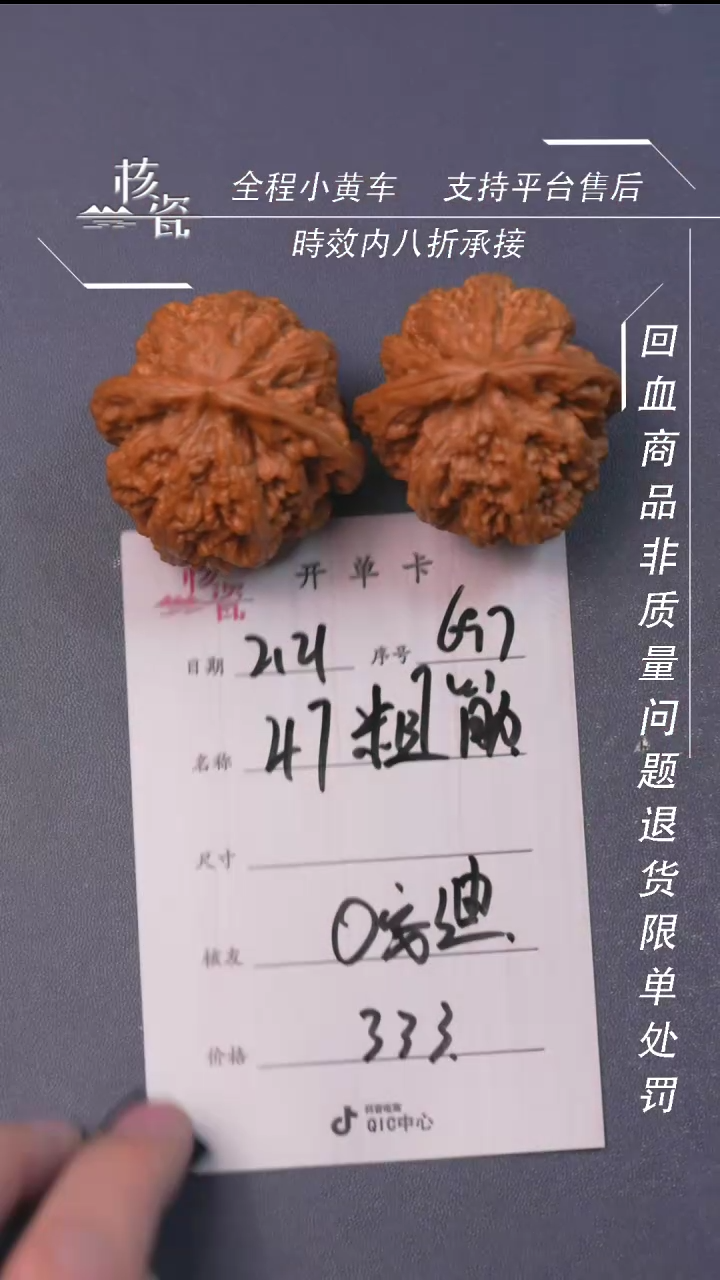 核瓷
全程小黄车 支持平台售后
時效内八折承接
回血商品非质量问题退货限单处罚
核瓷
开单卡
日期 2.21 序号 697
名称 47粗筋
尺寸
核友
价格 333.
抖音电商
QIC中心